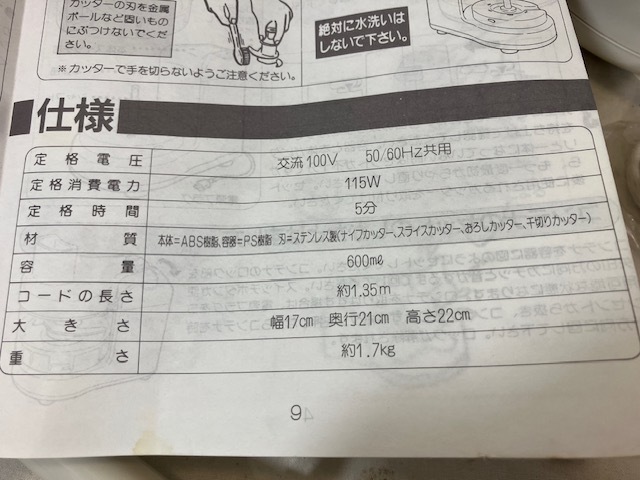 カッターの刃を金属
ボールなど固いもの
にぶつけないでくだ
さい。
絶対に水洗いは
しないで下さい。
※カッターで手を切らないようご注意ください。
仕様
定格電圧 交流100V 50/60Hz共用
定格消費電力 115W
定格時間 5分
材質 本体=ABS樹脂、容器=PS樹脂 刃=ステンレス製(ナイフカッター、スライスカッター、おろしカッター、千切りカッター)
容量 600mℓ
コードの長さ 約1.35m
大きさ 幅17cm 奥行21cm 高さ22cm
重さ 約1.7kg
9